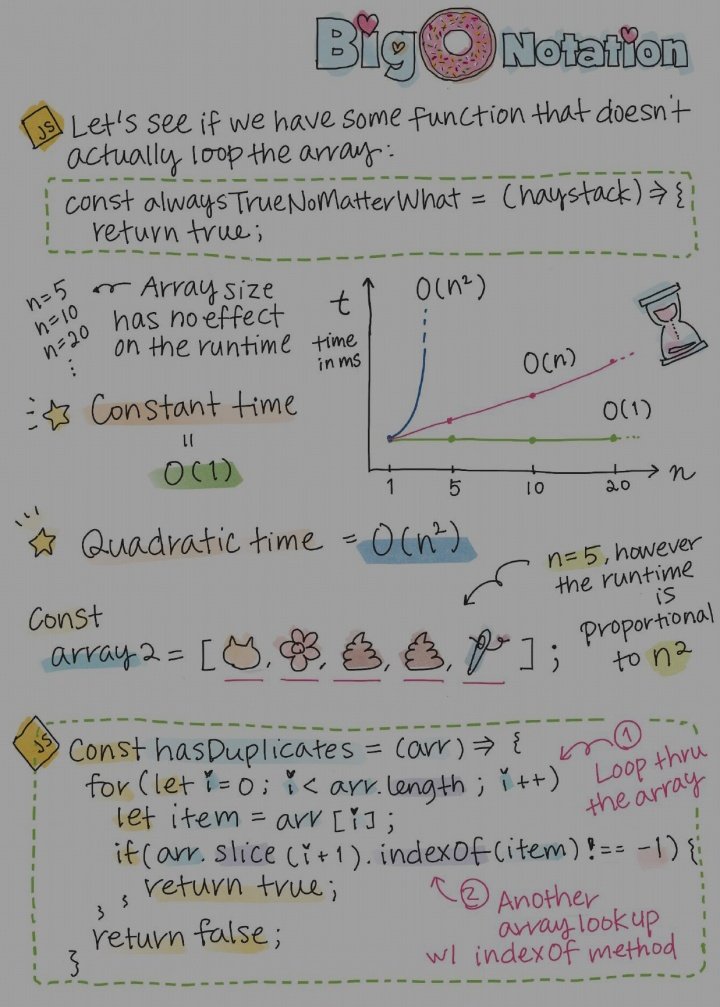 Big O Notation
JS Let's see if we have some function that doesn't
actually loop the array:
const alwaysTrueNoMatterWhat = (haystack) => {
return true;
n=5
n=10
n=20
⋮
Array size
has no effect
on the runtime
Constant time
=
O(1)
t
time
in ms
O(n²)
O(n)
O(1)
1 5 10 20 n
Quadratic time = O(n²)
n=5, however
the runtime
is
proportional
to n²
Const
array2 = [ , , , , ];
JS Const hasDuplicates = (arr) => {
for (let i=0; i < arr.length; i++)
let item = arr [i];
if(arr.slice (i+1).indexOf(item) !== -1) {
return true;
} }
return false;
}
1 Loop thru
the array
2 Another
array lookup
w/ indexOf method